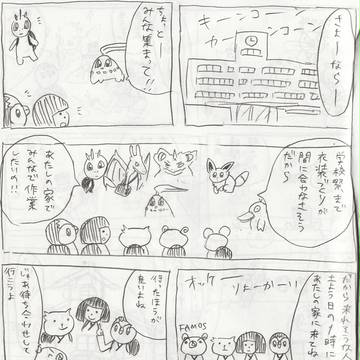 さよーならー
キーンコーン
カーンコーン
ちょっとー
みんな集まって!!
学校祭まで
衣装づくりが
間に合わなさそう
だから
あたしの家で
みんなで作業
したいの!!
だから来れそうな
土よう日の 時に
あたしの家に来てね
りょーかーい
オッケー
FAMOS
行ったほうが
良いよね
じゃあ待ち合わせして
行こうよ